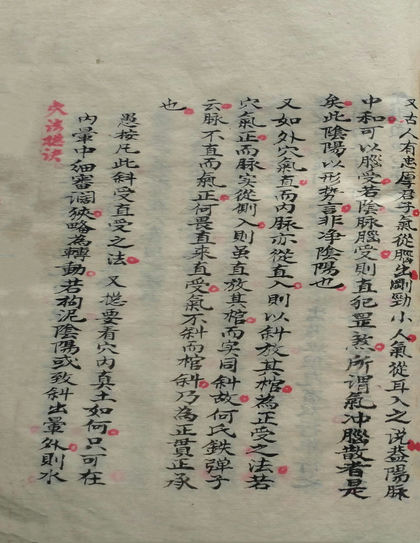 古人有忠厚君子氣從腦出剛勁小人氣從耳入之說蓋陽脈
中和可以腦受若陰脈腦受則直犯罡煞所謂氣冲腦散者是
矣此陰陽以形勢言非净陰陽也
又如外穴氣直而內脉亦從直入則以斜放其棺為正受之法若
穴氣正而脉实從側入則虽直放其棺而实同斜故何氏鉄弹子
云脉不直而氣正何畏直來直受氣不斜而棺斜乃為正貫正承
也
愚按凡此斜受直受之法又總要看穴內真土如何只可在
內暈中細審濶狹略為轉動若拘泥陰陽或致斜出暈外則水
穴法總訣